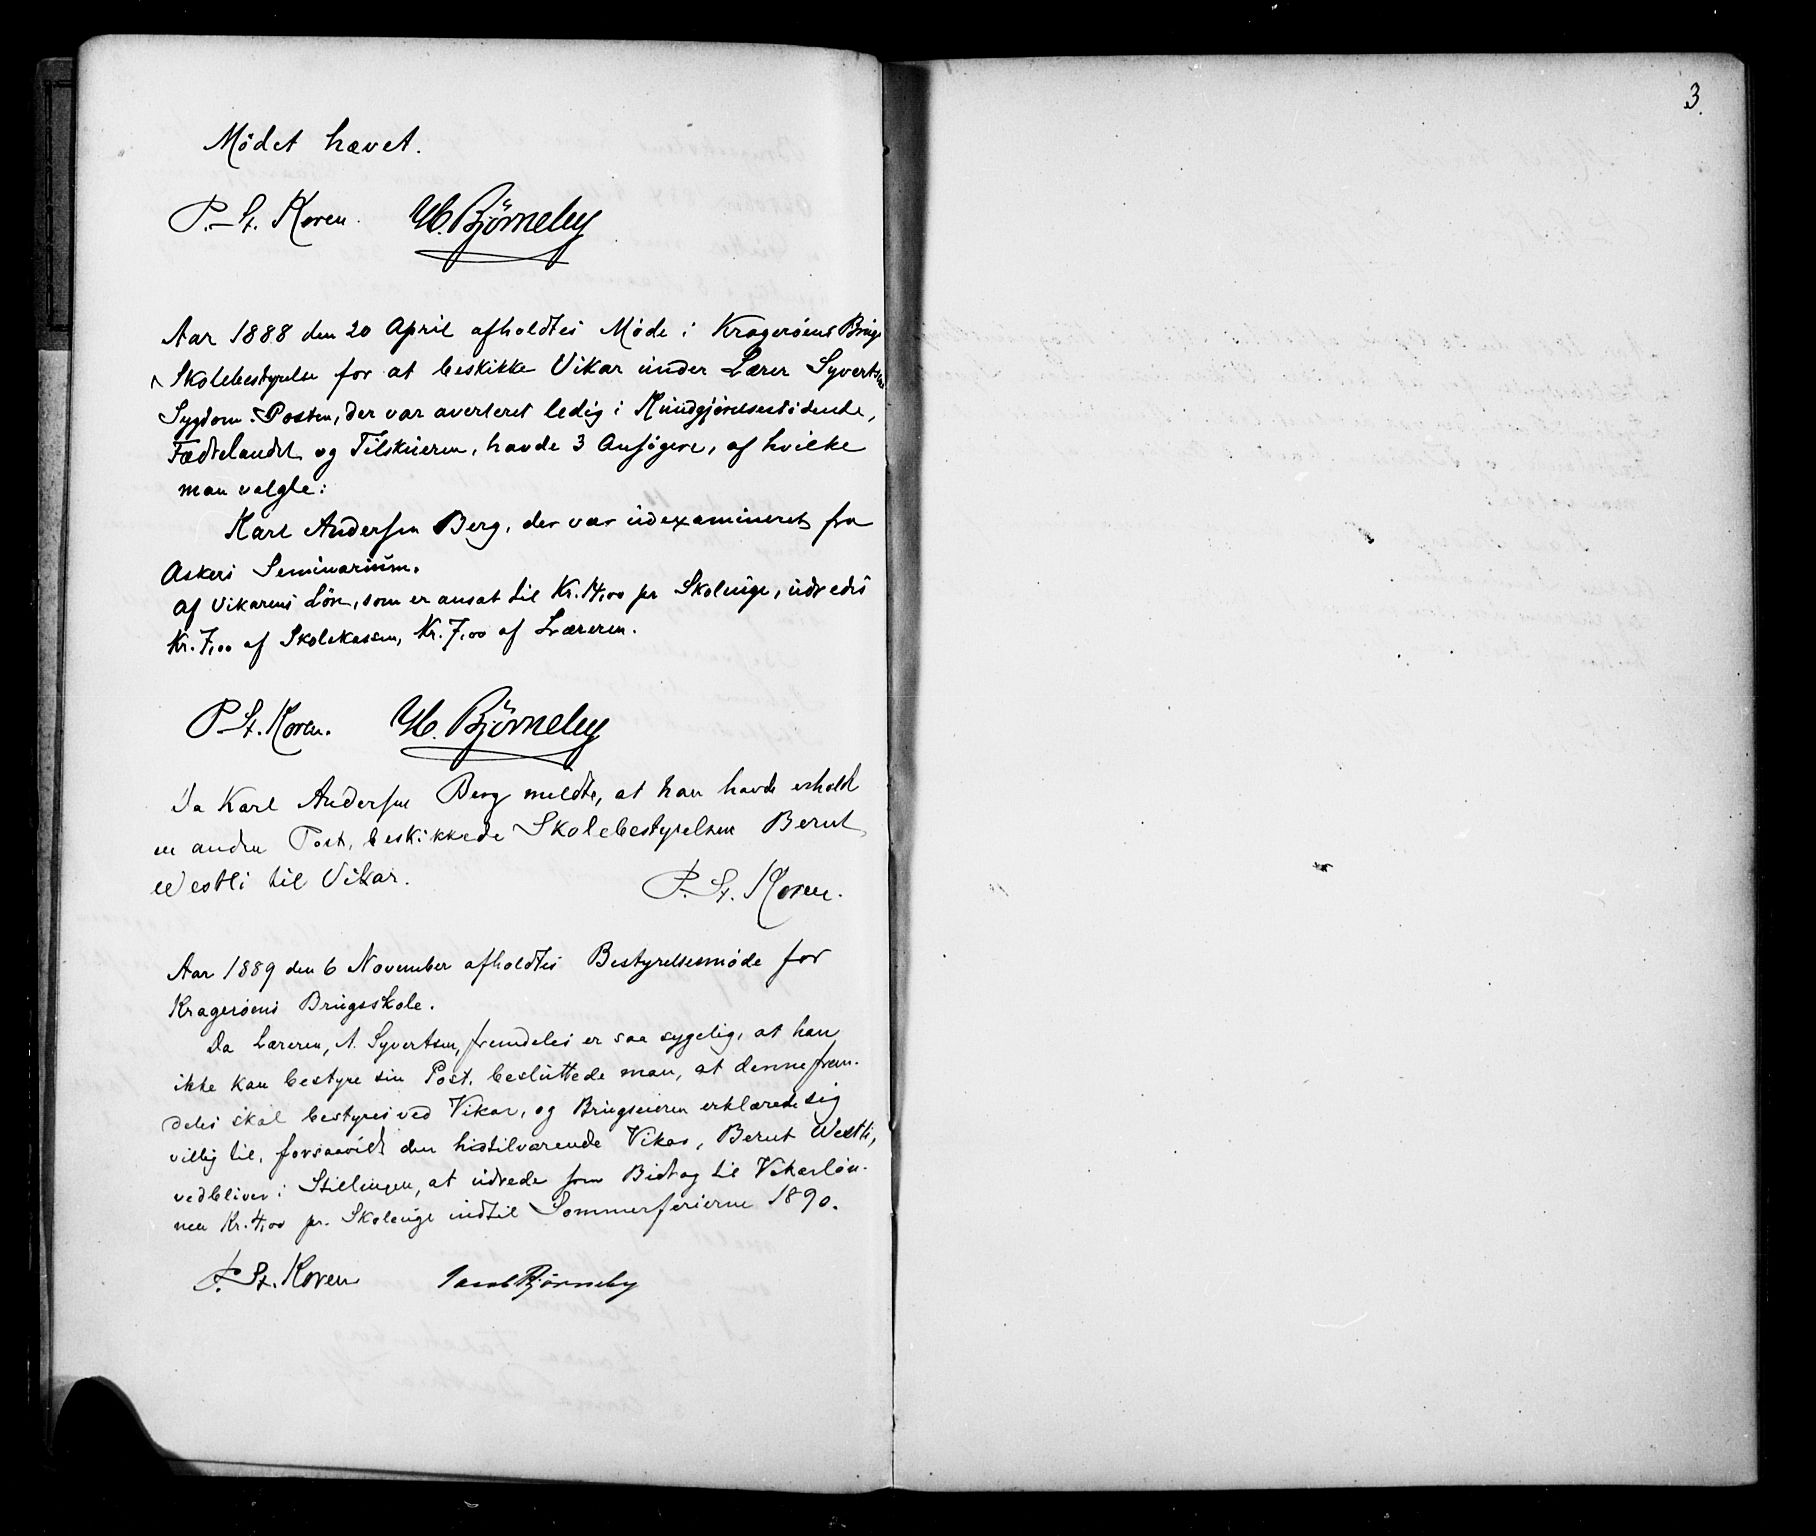 3.
Mødet hævet.
P. St. Koren. H. Bjørneby
Aar 1888 den 20 April afholdtes Møde i Kragerøens Brugs
Skolebestyrelse for at beskikke Vikar under Lærer Syvertsens
Sygdom. Posten, der var averteret ledig i Kundgjørelsestidende,
Fædrelandet og Tilskueren, havde 3 Ansøgere, af hvilke
man valgte:
Karl Andersen Berg, der var udexamineret fra
Askers Seminarium.
Af Vikarens Løn, som er ansat til Kr. 14,00 pr Skoleuge, udredes
Kr. 7,00 af Skolekassen, Kr. 7,00 af Læreren.
P. St. Koren. H. Bjørneby
Da Karl Andersen Berg meldte, at han havde erholdt
en anden Post, beskikkede Skolebestyrelsen Bernt
Westli til Vikar.
P. St. Koren.
Aar 1889 den 6 November afholdtes Bestyrelsesmøde for
Kragerøens Brugsskole.
Da Læreren, A. Syvertsen, fremdeles er saa sygelig, at han
ikke kan bestyre sin Post, besluttede man, at denne frem-
deles skal bestyres ved Vikar, og Brugseieren erklærede sig
villig til, forsaavidt den hidtilværende Vikar, Bernt Westli,
vedbliver i Stillingen, at udrede som Bidrag til Vikarløn-
nen Kr. 4,00 pr. Skoleuge indtil Sommerferierne 1890.
P. St. Koren Jacob Bjørneby